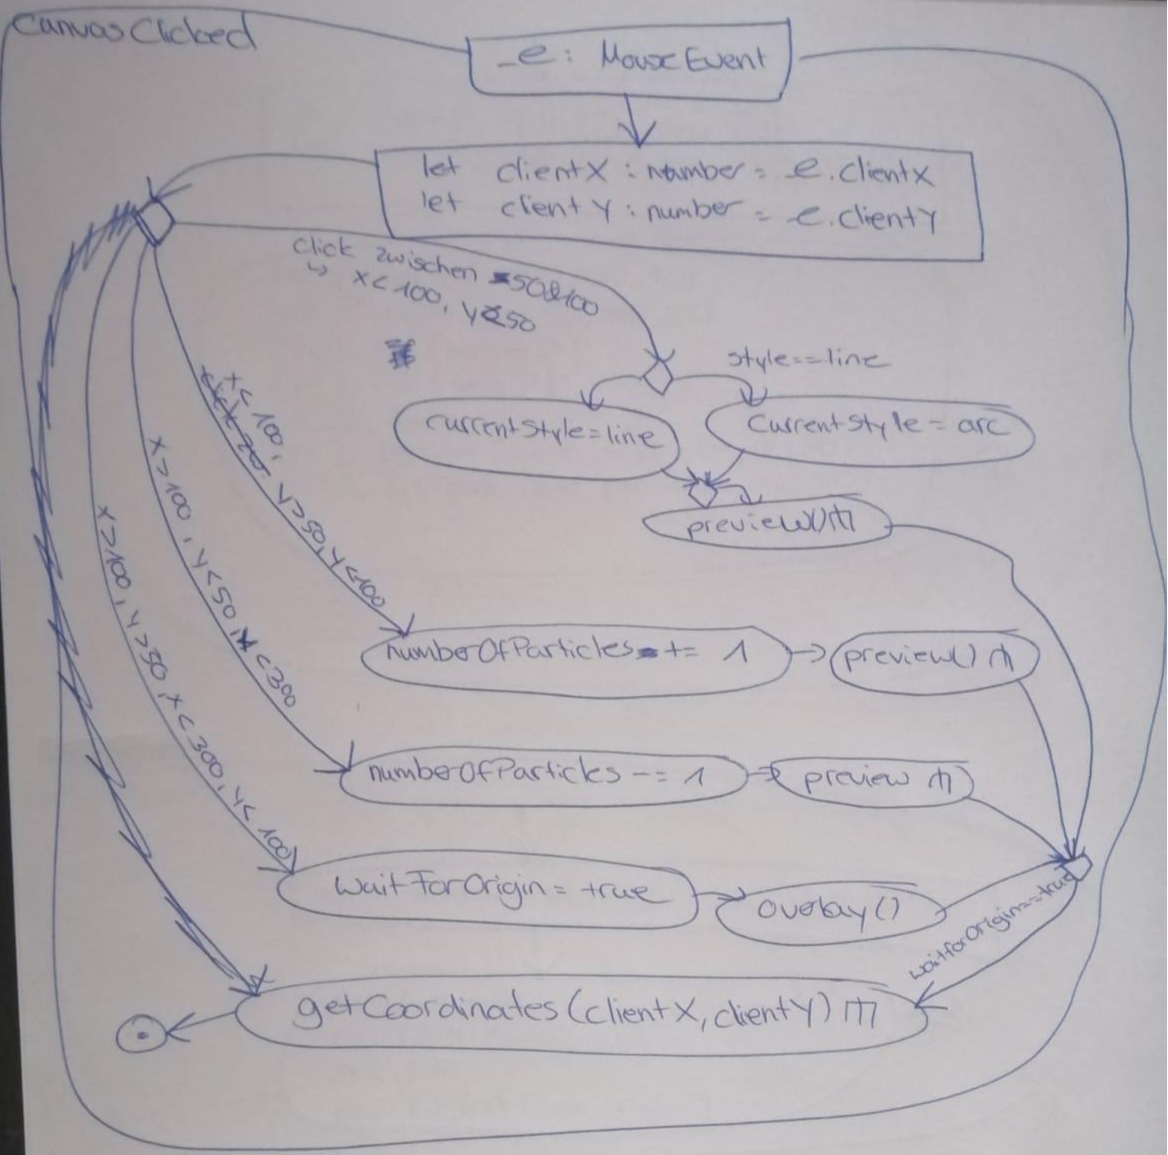 CanvasClicked
_e: MouseEvent
let clientX: number = e.clientX
let clientY: number = e.clientY
click zwischen 50&100
↳ x<100, y<50
style==line
currentStyle=line
currentStyle = arc
preview()
x<100,
y>50, y<100
numberOfParticles += 1
preview()
x>100, y<50, x<300
numberOfParticles -= 1
preview
x>100, y>50, x<300, y<100
waitForOrigin = true
overlay()
waitforOrigin==true
getCoordinates(clientX, clientY)